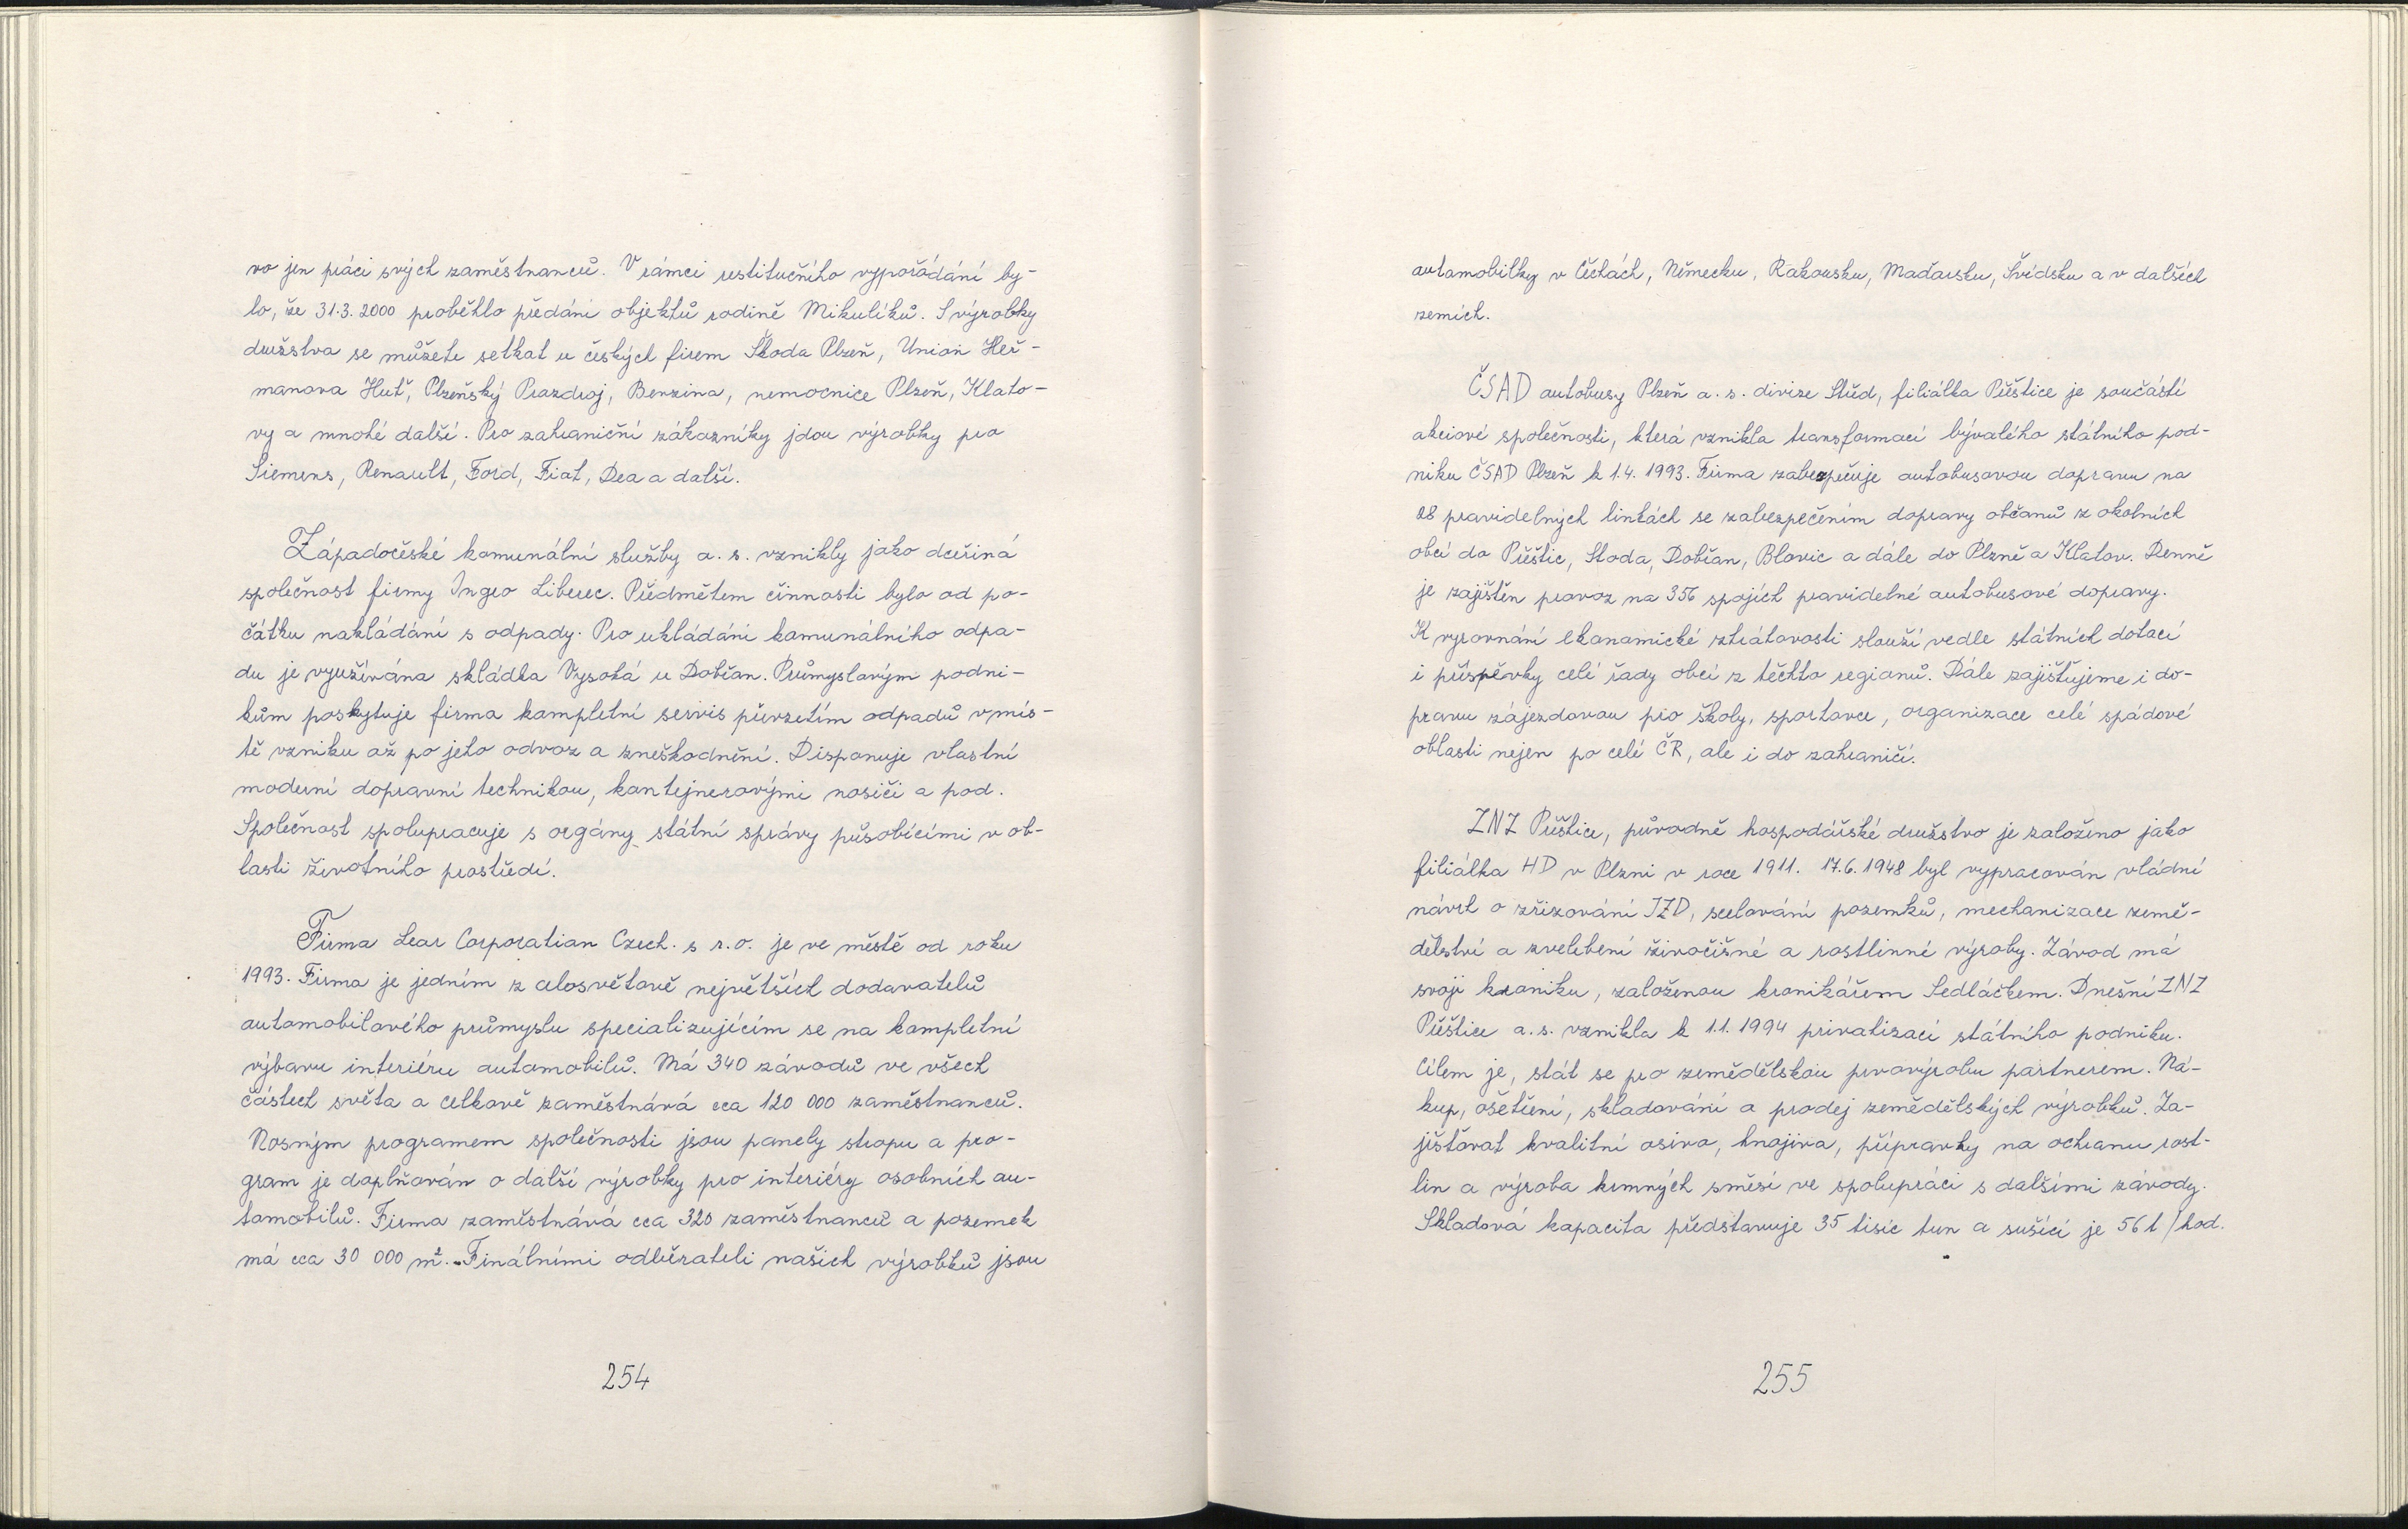 vo jen práci svých zaměstnanců. V rámci restitučního vypořádání by-
lo, že 31.3. 2000 proběhlo předání objektů rodině Mikulíků. S výrobky
družstva se můžete setkat u českých firem Škoda Plzeň, Union Heř-
manova Huť, Plzeňský Prazdroj, Benzina, nemocnice Plzeň, Klato-
vy a mnohé další. Pro zahraniční zákazníky jdou výrobky pro
Siemens, Renault, Ford, Fiat, Dea a další.
Západočeské komunální služby a. s. vznikly jako dceřiná
společnost firmy Ingeo Liberec. Předmětem činnosti bylo od po-
čátku nakládání s odpady. Pro ukládání komunálního odpa-
du je využívána skládka Vysoká u Dobřan. Průmyslovým podni-
kům poskytuje firma kompletní servis převzetím odpadů v mís-
tě vzniku až po jeho odvoz a zneškodnění. Disponuje vlastní
moderní dopravní technikou, kontejnerovými nosiči a pod.
Společnost spolupracuje s orgány státní správy působícími v ob-
lasti životního prostředí.
Firma Lear Corporation Czech. s r.o. je ve městě od roku
1993. Firma je jedním z celosvětově největších dodavatelů
automobilového průmyslu specializujícím se na kompletní
výbavu interiéru automobilů. Má 340 závodů ve všech
částech světa a celkově zaměstnává cca 120 000 zaměstnanců.
Nosným programem společnosti jsou panely stropu a pro-
gram je doplňován o další výrobky pro interiéry osobních au-
tomobilů. Firma zaměstnává cca 320 zaměstnanců a pozemek
má cca 30 000 m². Finálními odběrateli našich výrobků jsou
254
automobilky v Čechách, Německu, Rakousku, Maďarsku, Švédsku a v dalších
zemích.
ČSAD autobusy Plzeň a. s. divize Střed, filiálka Přeštice je součástí
akciové společnosti, která vznikla transformací bývalého státního pod-
niku ČSAD Plzeň k 1.4. 1993. Firma zabezpečuje autobusovou dopravu na
28 pravidelných linkách se zabezpečením dopravy občanů z okolních
obcí do Přeštic, Stoda, Dobřan, Blovic a dále do Plzně a Klatov. Denně
je zajištěn provoz na 356 spojích pravidelné autobusové dopravy.
K vyrovnání ekonomické ztrátovosti slouží vedle státních dotací
i příspěvky celé řady obcí z těchto regionů. Dále zajišťujeme i do-
pravu zájezdovou pro školy, sportovce, organizace celé spádové
oblasti nejen po celé ČR, ale i do zahraničí.
ZNZ Přeštice, původně hospodářské družstvo je založeno jako
filiálka HD v Plzni v roce 1911. 17.6. 1948 byl vypracován vládní
návrh o zřizování JZD, scelování pozemků, mechanizace země-
dělství a zvelebení živočišné a rostlinné výroby. Závod má
svoji kroniku, založenou kronikářem Sedláčkem. Dnešní ZNZ
Přeštice a. s. vznikla k 1.1. 1994 privatizací státního podniku.
Cílem je, stát se pro zemědělskou prvovýrobu partnerem. Ná-
kup, ošetření, skladování a prodej zemědělských výrobků. Za-
jišťovat kvalitní osiva, hnojiva, přípravky na ochranu rost-
lin a výroba krmných směsí ve spolupráci s dalšími závody.
Skladová kapacita představuje 35 tisíc tun a sušící je 56 t/hod.
255